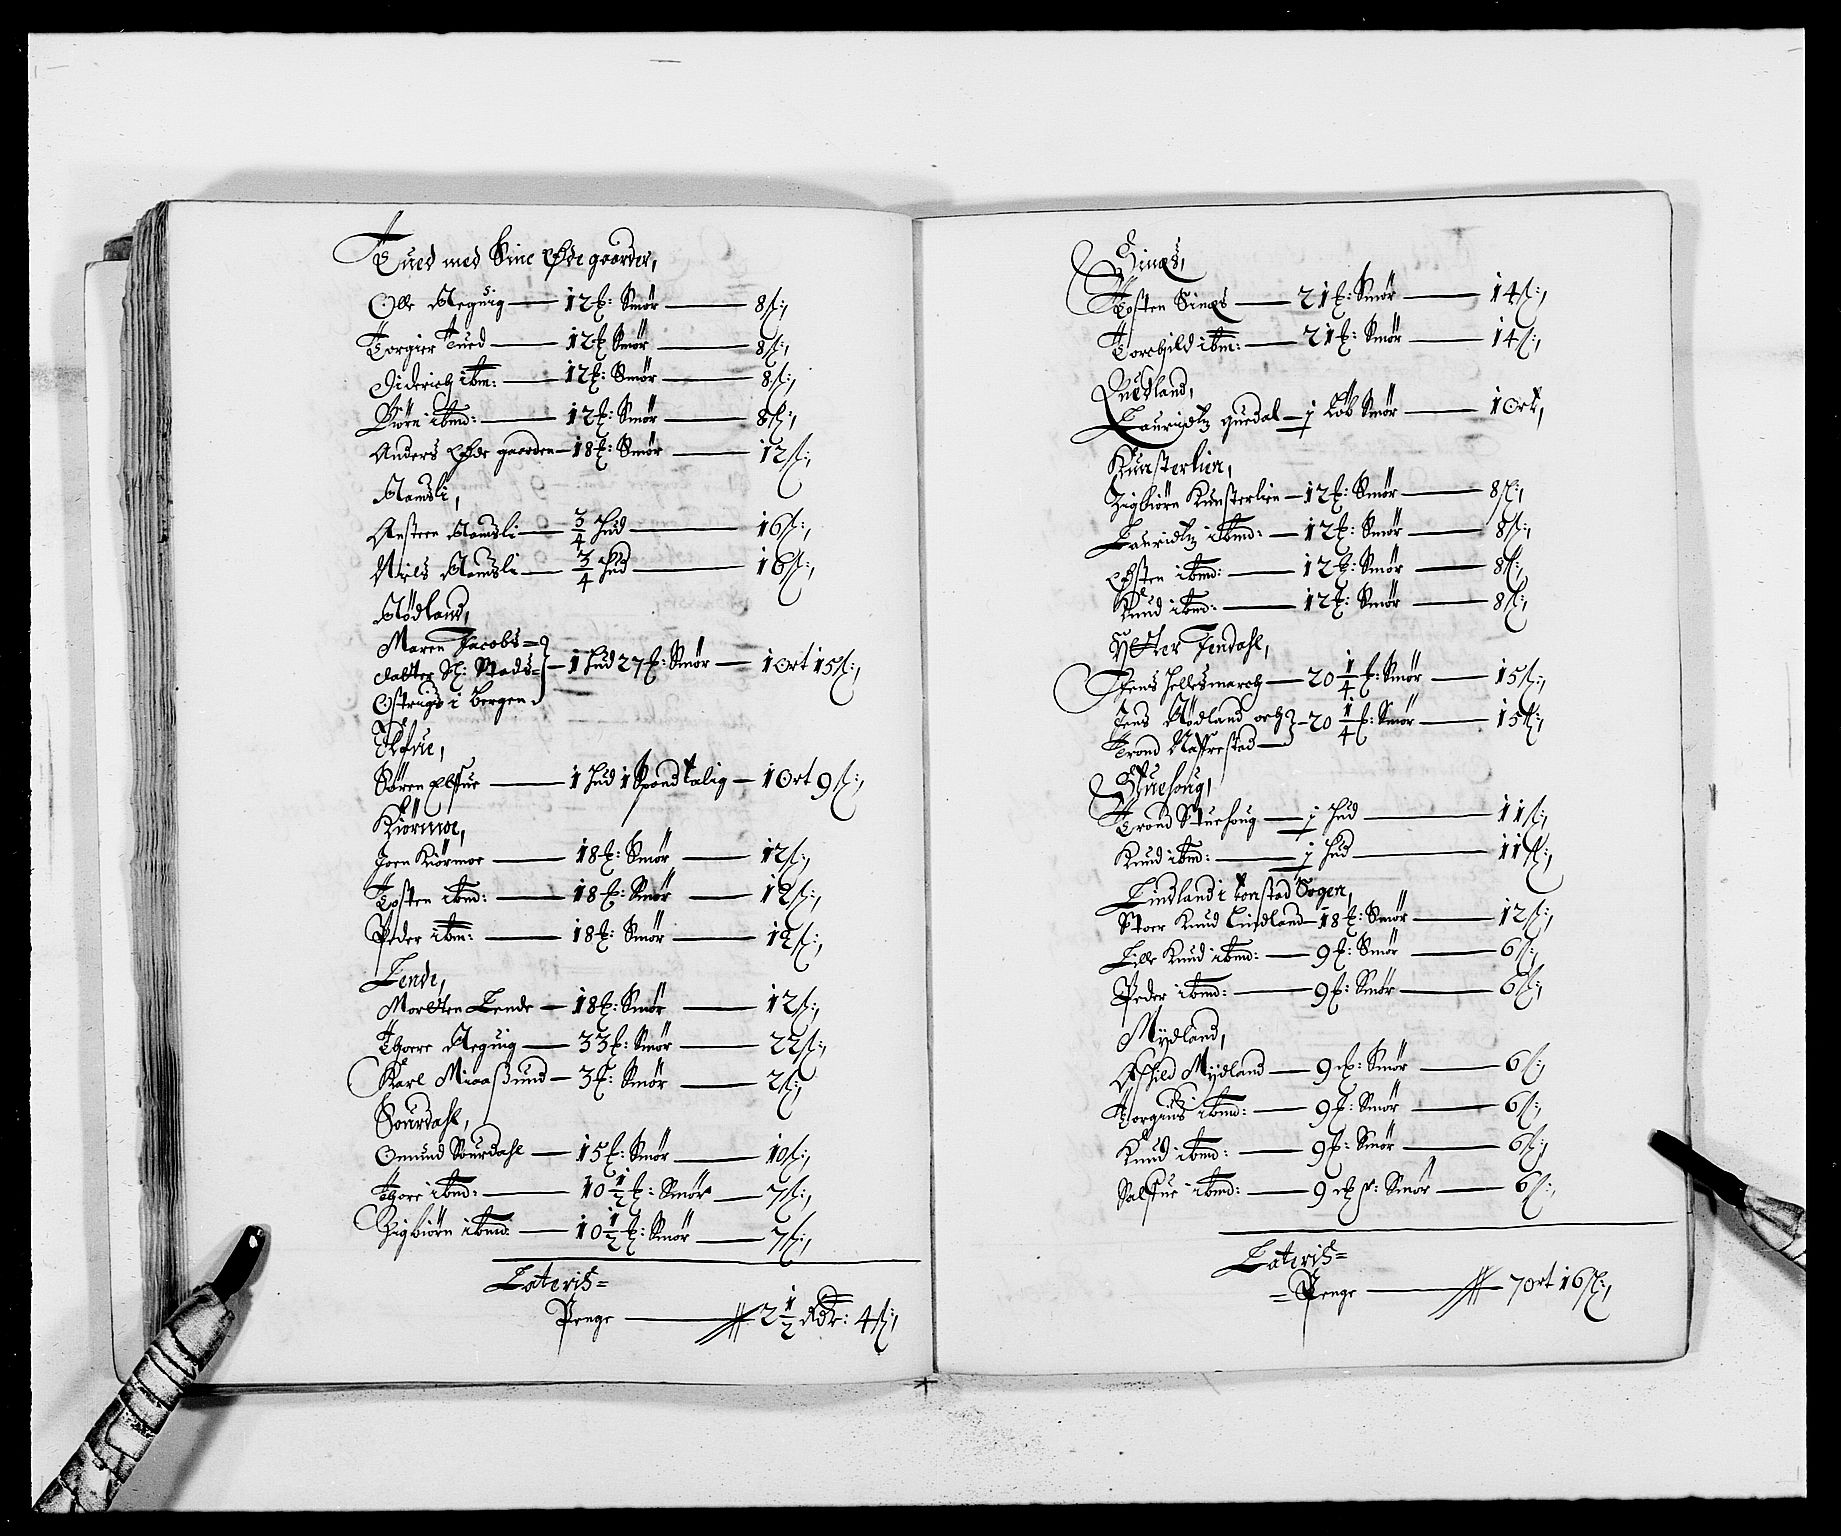 Tued med Sine Øde gaarder,
Olle Aeguig — 12 ℔: Smör — 8 ß:,
Torgier Tued — 12 ℔ Smör — 8 ß:,
Diderich ibm: — 12 ℔: Smör — 8 ß:,
Biörn ibmd: — 12 ℔: Smör — 8 ß:,
Anders Øde gaarden — 18 ℔: Smör — 12 ß:,
Ramsli,
Ansteen Ramsli — 3/4 Hud — 16 ß:,
Niels Ramsli — 3/4 Hud — 16 ß:,
Rödland,
Maren Jacobs=
datter Sl: Mads=
Ostrugs i Bergen — 1 Hud 27 ℔: Smör — 1 Ort 15 ß:,
Søren — 1 Hud 1 Spand talig — 1 Ort 9 ß:,
Kiörmoe,
Joen Kiörmoe — 18 ℔: Smör — 12 ß:,
Tosten ibmd: — 18 ℔: Smör — 12 ß:,
Peder ibm: — 18 ℔: Smör — 12 ß:,
Lende,
Morten Lende — 18 ℔: Smör — 12 ß:,
Thore Aeguig — 33 ℔: Smör — 22 ß:,
Karl Miaasund — 3 ℔: Smör — 2 ß:,
Sourdahl,
Omund Sourdahl — 15 ℔: Smör — 10 ß:,
Thore ibmd: — 10 1/2 ℔: Smör — 7 ß:,
Sigbiörn ibmd: — 10 1/2 ℔: Smör — 7 ß:,
Lateris=
Penge — 2 1/2 Rdr: 4 ß:,
Sinæs,
Tosten Sinæs — 21 ℔: Smör — 14 ß:,
Torchild ibm: — 21 ℔: Smör — 14 ß:,
Quedland,
Lauridtz quedal — j Löb Smör — 1 Ort,
Kunsterlien,
Zigbiörn Kunsterlien — 12 ℔: Smör — 8 ß:,
Lauridtz ibmd: — 12 ℔: Smör — 8 ß:,
Østen ibmd: — 12 ℔: Smör — 8 ß:,
Knud ibmd: — 12 ℔: Smör — 8 ß:,
Ytter Fendahl,
Jens Hellesmarch — 20 1/4 ℔: Smör — 15 ß:,
Jens Rödland och
Trond Naffrestad — 20 1/4 ℔: Smör — 15 ß:,
Stuehoug,
Trond Stuehoug — j Hud — 11 ß:,
Knud ibmd: — j Hud — 11 ß:,
Lindland i Tonstad Sogen,
Stoer Knud Lindland — 18 ℔: Smör — 12 ß:,
Lille Knud ibmd: — 9 ℔: Smör — 6 ß:,
Peder ibmd: — 9 ℔: Smör — 6 ß:,
Mydland,
Aschild Mydland — 9 ℔: Smör — 6 ß:,
Torgius ibmd: — 9 ℔: Smör — 6 ß:,
Knud ibmd: — 9 ℔: Smör — 6 ß:,
Salfue ibmd: — 9 Smör — 6 ß:,
Lateris=
=Penge — 7 ort 16 ß:,